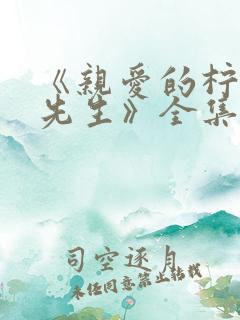 《親愛的柠
先生》全集
司空逐月
未经同意禁止转载